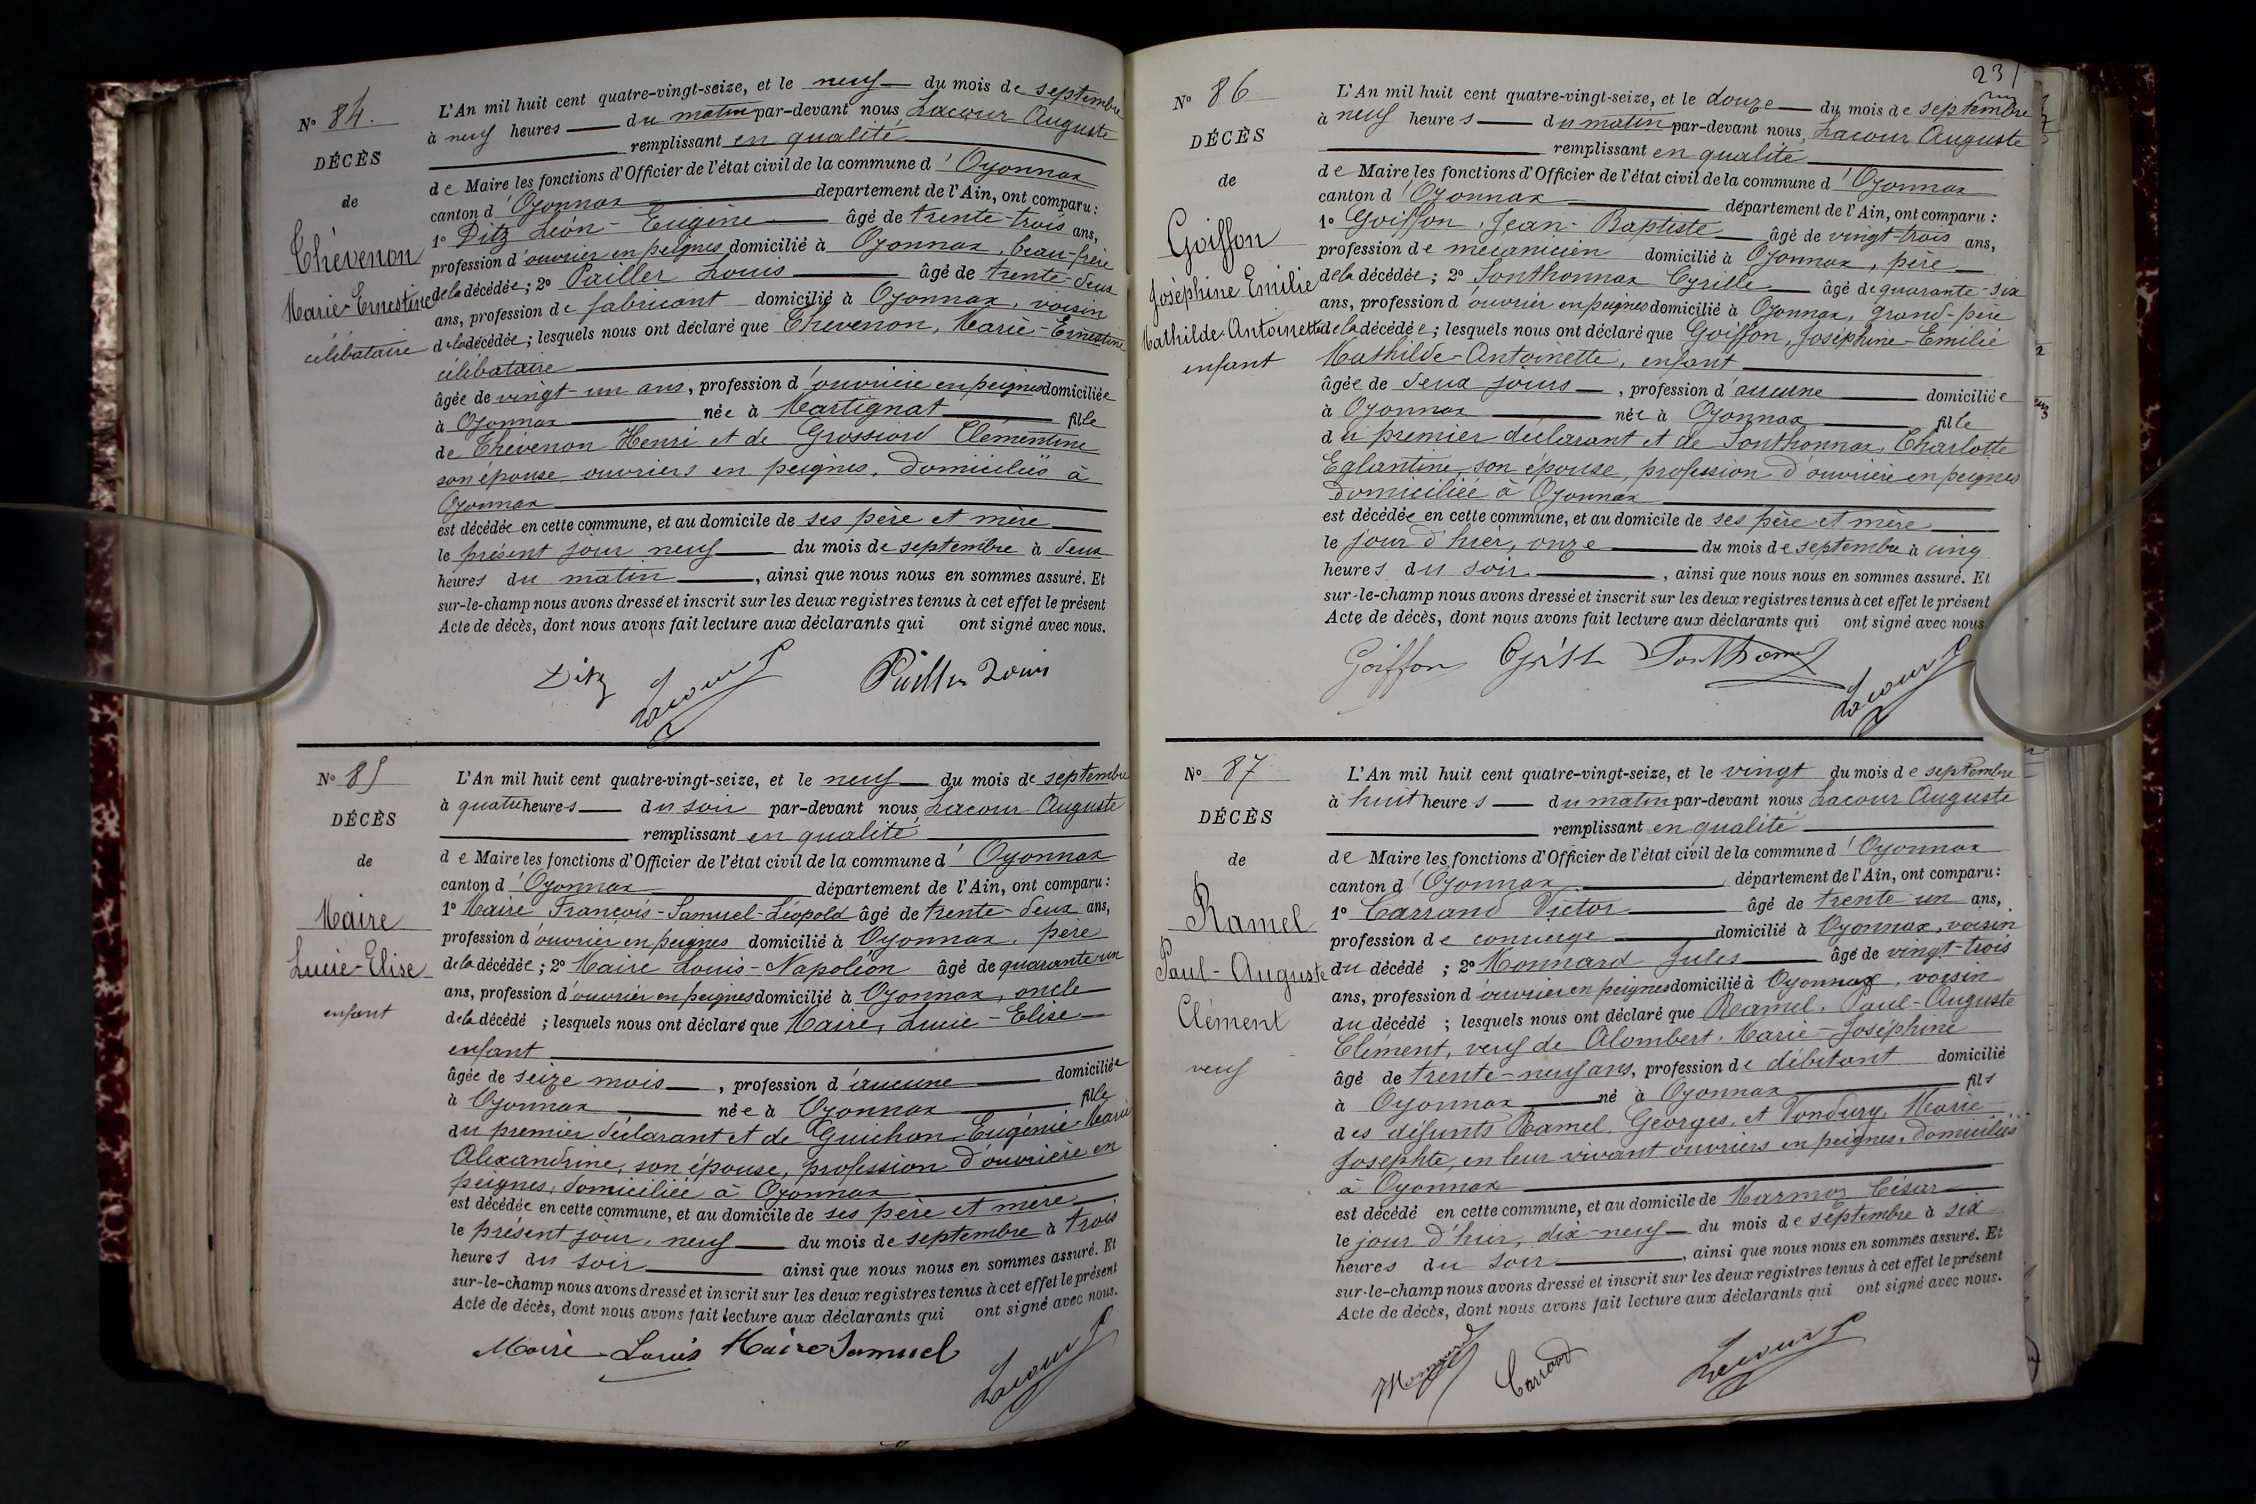 N° 84.
DÉCÈS
de
Thévenon
Marie-Ernestine
célibataire
L'An mil huit cent quatre-vingt-seize, et le neuf du mois de septembre
à neuf heures du matin par-devant nous Lacour Auguste
remplissant en qualité
de Maire les fonctions d'Officier de l'état civil de la commune d'Oyonnax
canton d'Oyonnax département de l'Ain, ont comparu :
1° Ditz Léon-Eugène âgé de trente-trois ans,
profession d'ouvrier en peignes domicilié à Oyonnax, beau-frère
de la décédée ; 2° Pailler Louis âgé de trente-deux
ans, profession de fabricant domicilié à Oyonnax, voisin
de la décédée ; lesquels nous ont déclaré que Thévenon, Marie-Ernestine
célibataire
âgée de vingt un ans, profession d'ouvrière en peignes domiciliée
à Oyonnax née à Martignat fille
de Thévenon Henri et de Grossiord Clémentine
son épouse, ouvriers en peignes, domiciliés à
Oyonnax
est décédée en cette commune, et au domicile de ses père et mère
le présent jour neuf du mois de septembre à deux
heures du matin, ainsi que nous nous en sommes assuré. Et
sur-le-champ nous avons dressé et inscrit sur les deux registres tenus à cet effet le présent
Acte de décès, dont nous avons fait lecture aux déclarants qui ont signé avec nous.
Ditz Lacour Pailler Louis
N° 85
DÉCÈS
de
Maire
Lucie-Elise
enfant
L'An mil huit cent quatre-vingt-seize, et le neuf du mois de septembre
à quatre heures du soir par-devant nous Lacour Auguste
remplissant en qualité
de Maire les fonctions d'Officier de l'état civil de la commune d'Oyonnax
canton d'Oyonnax département de l'Ain, ont comparu :
1° Maire François-Samuel-Léopold âgé de trente-deux ans,
profession d'ouvrier en peignes domicilié à Oyonnax, père
de la décédée ; 2° Maire Louis-Napoléon âgé de quarante un
ans, profession d'ouvrier en peignes domicilié à Oyonnax, oncle
de la décédé ; lesquels nous ont déclaré que Maire, Lucie-Elise
enfant
âgée de seize mois, profession d'aucune domiciliée
à Oyonnax née à Oyonnax fille
du premier déclarant et de Guichon Eugénie Marie
Alexandrine, son épouse, profession d'ouvrière en
peignes, domiciliée à Oyonnax
est décédée en cette commune, et au domicile de ses père et mère
le présent jour, neuf du mois de septembre à trois
heures du soir ainsi que nous nous en sommes assuré. Et
sur-le-champ nous avons dressé et inscrit sur les deux registres tenus à cet effet le présent
Acte de décès, dont nous avons fait lecture aux déclarants qui ont signé avec nous.
Maire Louis Maire Samuel Lacour
231
N° 86
DÉCÈS
de
Goiffon
Joséphine Emilie
Mathilde-Antoinette
enfant
L'An mil huit cent quatre-vingt-seize, et le douze du mois de septembre
à neuf heures du matin par-devant nous, Lacour Auguste
remplissant en qualité
de Maire les fonctions d'Officier de l'état civil de la commune d'Oyonnax
canton d'Oyonnax département de l'Ain, ont comparu :
1° Goiffon, Jean-Baptiste âgé de vingt-trois ans,
profession de mécanicien domicilié à Oyonnax, père
de la décédée ; 2° Sonthonnax Cyrille âgé de quarante-six
ans, profession d'ouvrier en peignes domicilié à Oyonnax, grand-père
de la décédée ; lesquels nous ont déclaré que Goiffon, Joséphine-Emilie
Mathilde-Antoinette, enfant
âgée de deux jours, profession d'aucune domiciliée
à Oyonnax née à Oyonnax fille
du premier déclarant et de Sonthonnax, Charlotte
Eglantine, son épouse, profession d'ouvrière en peignes
domiciliée à Oyonnax
est décédée en cette commune, et au domicile de ses père et mère
le jour d'hier, onze du mois de septembre à cinq
heures du soir, ainsi que nous nous en sommes assuré. Et
sur-le-champ nous avons dressé et inscrit sur les deux registres tenus à cet effet le présent
Acte de décès, dont nous avons fait lecture aux déclarants qui ont signé avec nous.
Goiffon Lacour
N° 87
DÉCÈS
de
Ramel
Paul-Auguste
Clément
veuf
L'An mil huit cent quatre-vingt-seize, et le vingt du mois de septembre
à huit heures du matin par-devant nous Lacour Auguste
remplissant en qualité
de Maire les fonctions d'Officier de l'état civil de la commune d'Oyonnax
canton d'Oyonnax département de l'Ain, ont comparu :
1° Carrand Victor âgé de trente un ans,
profession de concierge domicilié à Oyonnax, voisin
du décédé ; 2° Monnard Jules âgé de vingt-trois
ans, profession d'ouvrier en peignes domicilié à Oyonnax, voisin
du décédé ; lesquels nous ont déclaré que Ramel, Paul-Auguste
Clément, veuf de Alombert, Marie-Joséphine
âgé de trente-neuf ans, profession de débitant domicilié
à Oyonnax né à Oyonnax fils
des défunts Ramel, Georges, et Vondury, Marie
Josephte, en leur vivant ouvriers en peignes, domiciliés
à Oyonnax
est décédé en cette commune, et au domicile de Marmoz César
le jour d'hier, dix-neuf du mois de septembre à six
heures du soir, ainsi que nous nous en sommes assuré. Et
sur-le-champ nous avons dressé et inscrit sur les deux registres tenus à cet effet le présent
Acte de décès, dont nous avons fait lecture aux déclarants qui ont signé avec nous.
Monnard Carrand Lacour